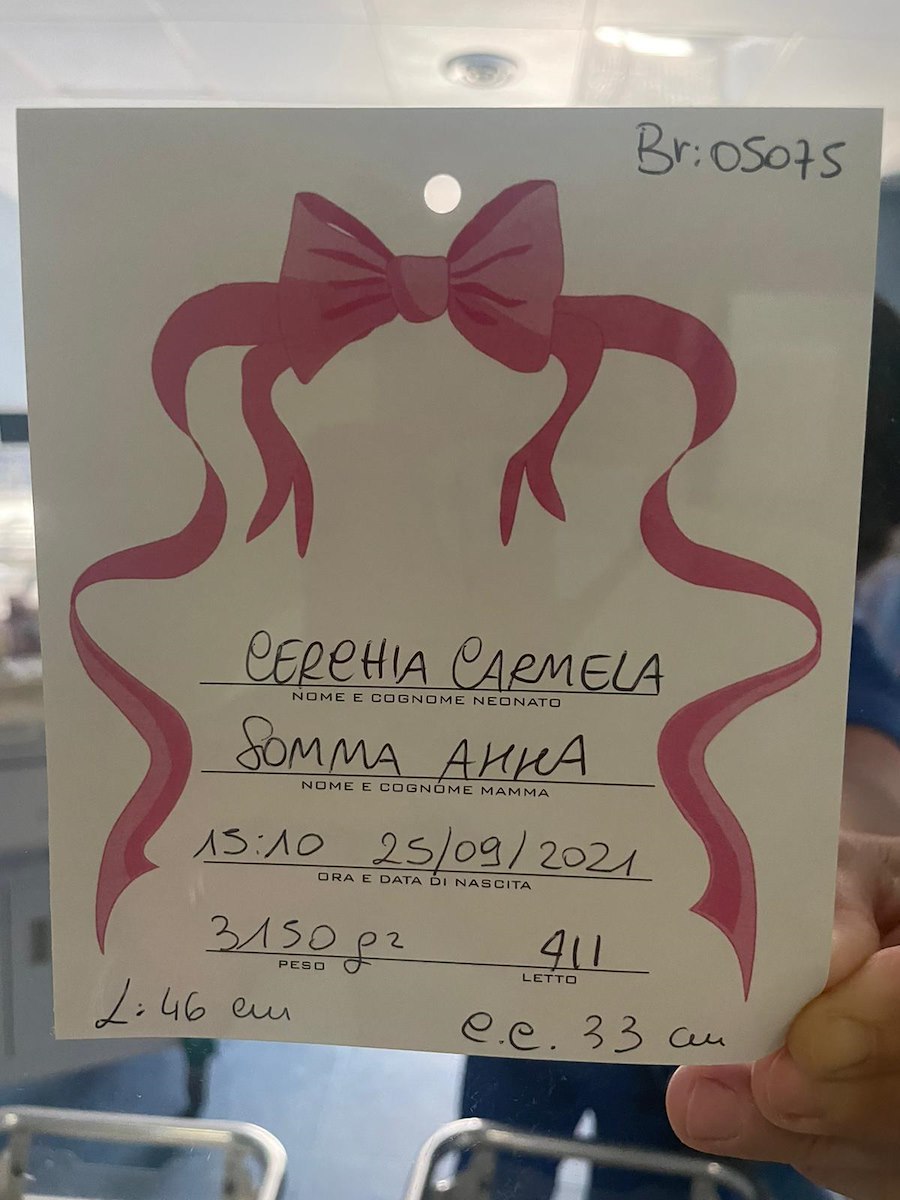 Br: 05075
CERCHIA CARMELA
NOME E COGNOME NEONATO
SOMMA ANNA
NOME E COGNOME MAMMA
15:10 25/09/2021
ORA E DATA DI NASCITA
3150 gr 411
PESO LETTO
L: 46 cm c.c. 33 cm